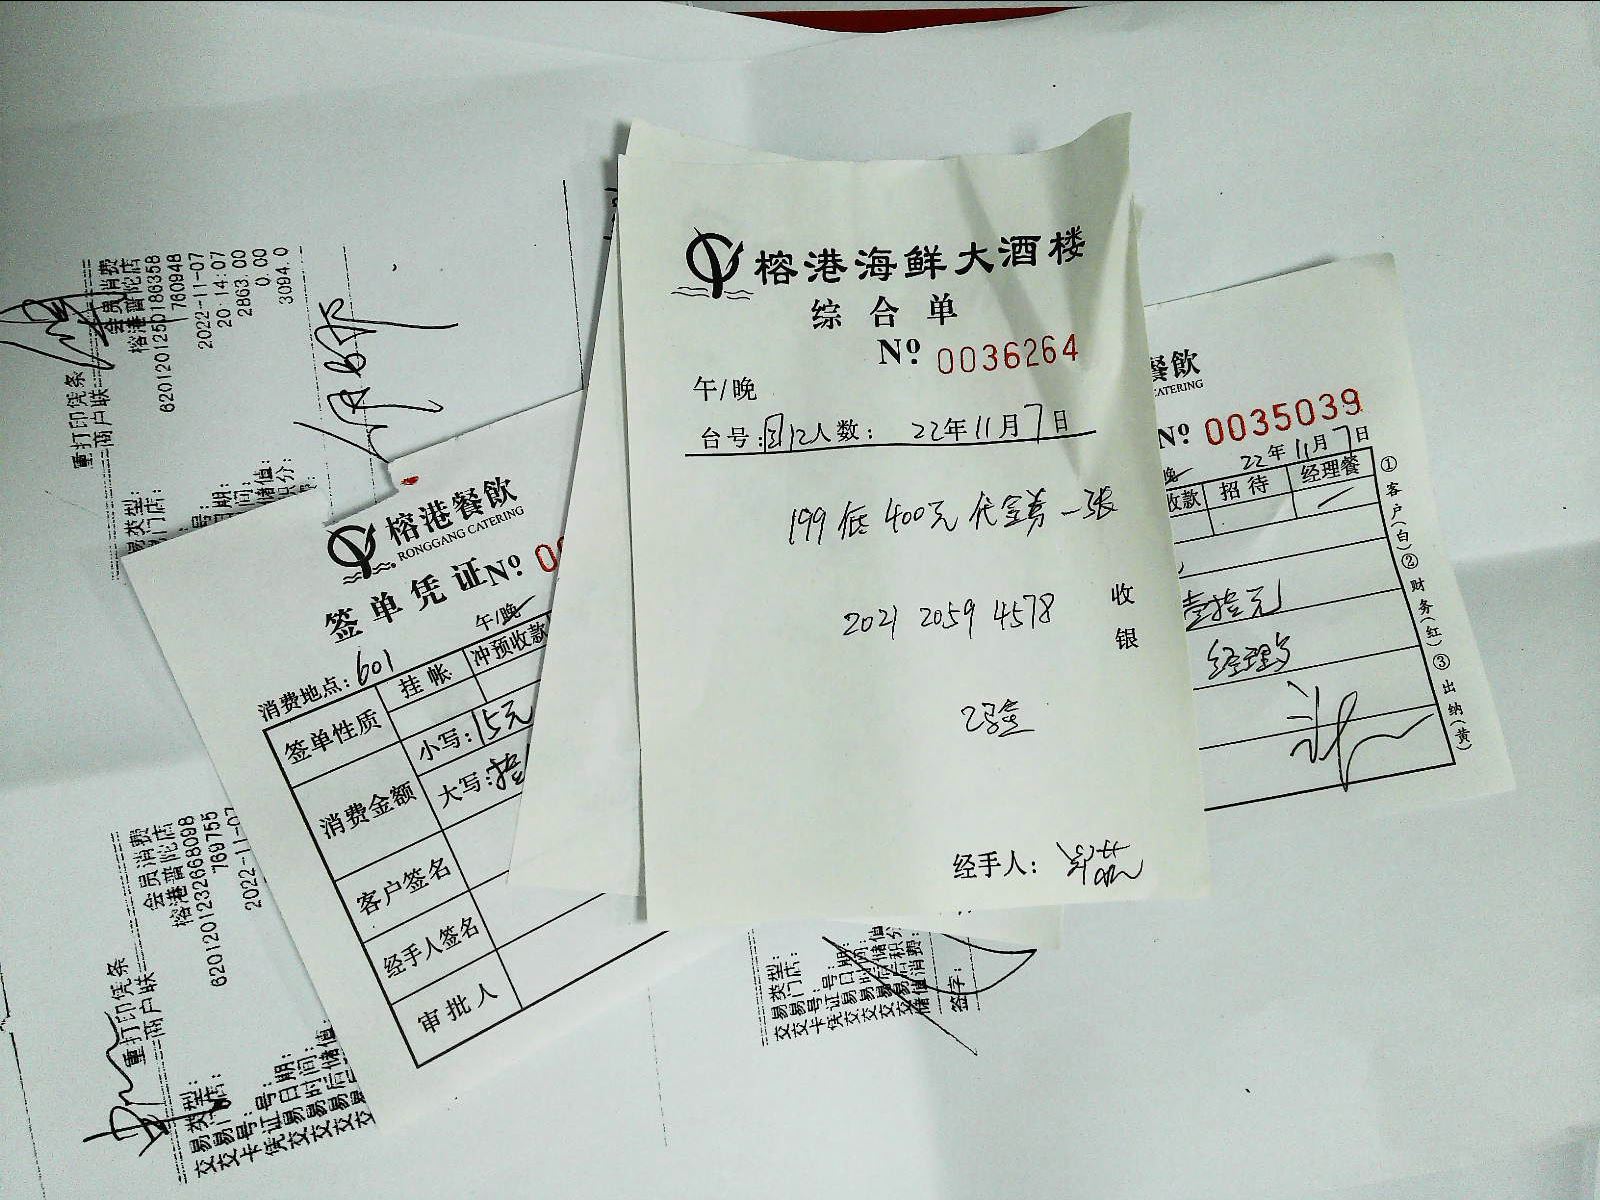 榕港海鲜大酒楼
综合单
Nº 0036264
午/晚
台号: 人数: 22年11月7日
199 低 400元 代金券 一张
2021 2059 4578
收银
经手人:
榕港餐飲
RONGGANG CATERING
签单凭证 Nº 00
午/晚
消费地点: 601
签单性质 挂帐 冲预收款
消费金额 小写: 15元
大写: 拾
客户签名
经手人签名
审批人
餐飲
CATERING
Nº 0035039
晚 22年11月7日
收款 招待 经理餐
壹拾元
经理
①客户(白)②财务(红)③出纳(黄)
重打印凭条
商户联
易类型: 会员消费
易门店: 榕港普陀店
6201201250186358
760948
号: 
日期: 2022-11-07
时间: 20:14:07
储值: 2863.00
积分: 0.00
3094.0
重打印凭条
商户联
交易类型: 会员消费
交易门店: 榕港普陀店
卡号: 6201201232668098
凭证号: 769755
交易日期: 2022-11-07
交易时间:
交易后储值:
交易类型:
交易门店:
卡号:
凭证号:
交易日期:
交易时间:
交易后储值
交易后积分
储值消费:
签字: